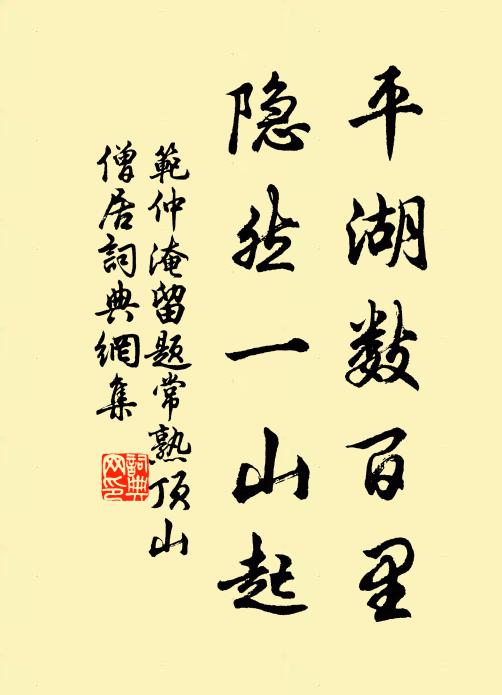 平湖数百里
隐然一山起
範仲淹留题常熟顶山
僧居詞典網集
詞典
网印